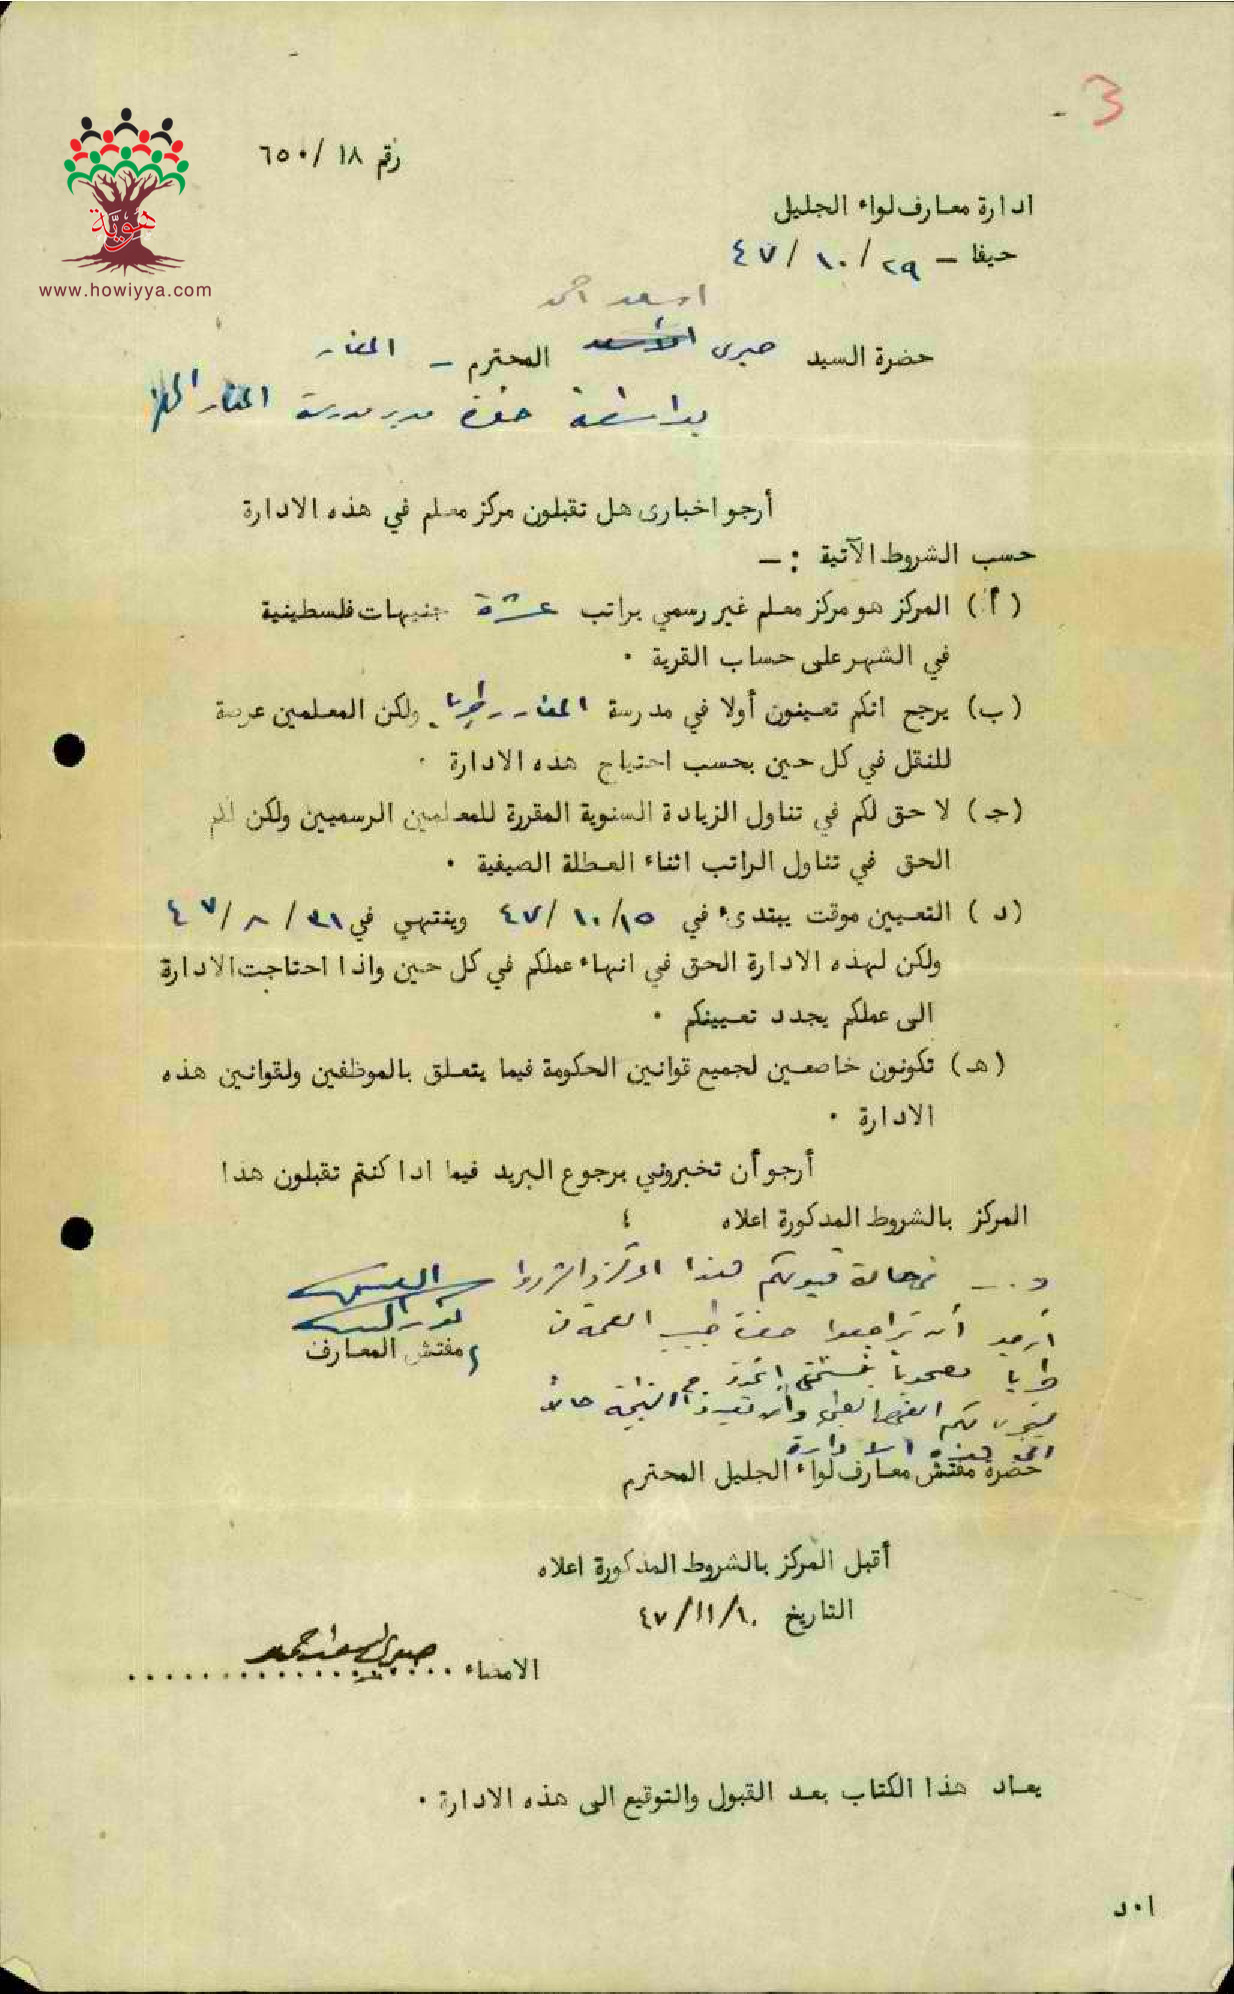 3 -
هويّة
www.howiyya.com
رقم ١٨ / ٦٥٠
ادارة معارف لواء الجليل
حيفا - ٢٩ / ١٠ / ٤٧
اسعد احمد
حضرة السيد صبري الاسعد المحترم - المغار
بواسطة حضرة مدير مدرسة المغار
أرجو اخباري هل تقبلون مركز معلم في هذه الادارة
حسب الشروط الآتية : -
( أ ) المركز هو مركز معلم غير رسمي براتب عشرة جنيهات فلسطينية
في الشهر على حساب القرية ٠
(ب) يرجح انكم تعينون أولا في مدرسة المغار ولكن المعلمين عرضة
للنقل في كل حين بحسب احتياج هذه الادارة ٠
(جـ) لا حق لكم في تناول الزيادة السنوية المقررة للمعلمين الرسميين ولكن لكم
الحق في تناول الراتب اثناء العطلة الصيفية ٠
(د) التعيين موقت يبتدىء في ١٥/ ١٠ / ٤٧ وينتهي في ٣١ / ٨ / ٤٧
ولكن لهذه الادارة الحق في انهاء عملكم في كل حين واذا احتاجت الادارة
الى عملكم يجدد تعيينكم ٠
(هـ) تكونون خاضعين لجميع قوانين الحكومة فيما يتعلق بالموظفين ولقوانين هذه
الادارة ٠
أرجو أن تخبروني برجوع البريد فيما اذا كنتم تقبلون هذا
المركز بالشروط المذكورة اعلاه ؛
و في حالة قبولكم هذا المركز
أرجو أن تراجعوا حضرة طبيب الصحة في
طبريا مصحوبا
لكم الفحص الطبي وأن النتيجة حالا
الى هذه الادارة
مفتش المعارف
حضرة مفتش معارف لواء الجليل المحترم
أقبل المركز بالشروط المذكورة اعلاه
التاريخ ١٠/ ١١ / ٤٧
الامضاء صبري اسعد احمد
يعاد هذا الكتاب بعد القبول والتوقيع الى هذه الادارة ٠
ا٠د